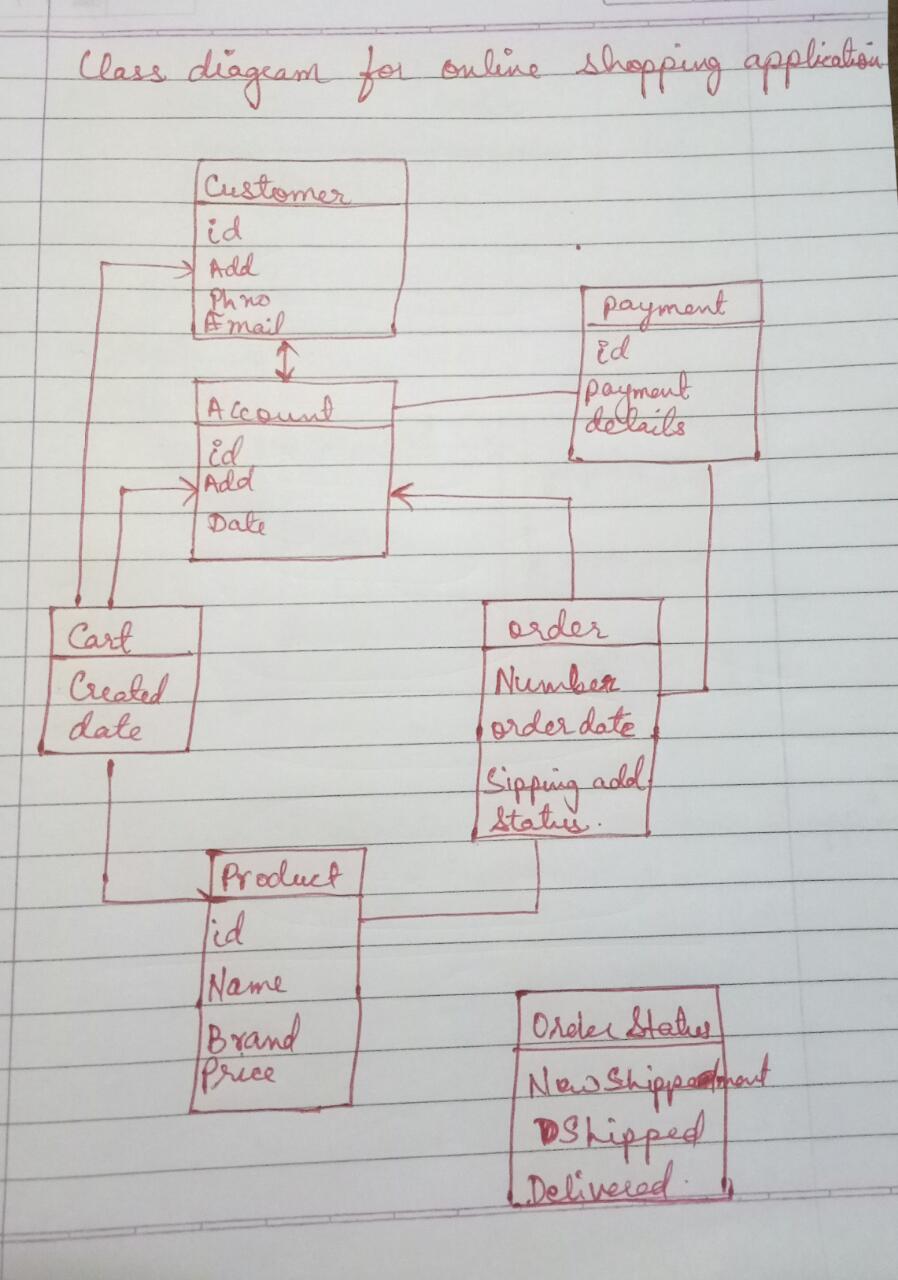 Class diagram for online shopping application
Customer
id
Add
Ph no
Email
payment
id
payment
details
Account
id
Add
Date
Cart
Created
date
order
Number
order date
Sipping add
Status.
Product
id
Name
Brand
Price
Order Status
New Shippment
Shipped
Delivered.